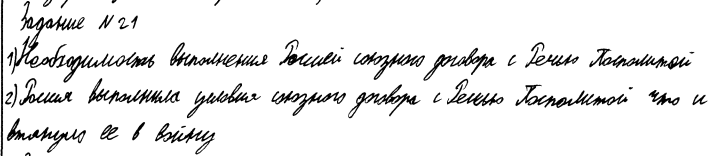 Задание № 21
1) Необходимость выполнения Россией союзного договора с Речью Посполитой
2) Россия выполнила условия союзного договора с Речью Посполитой что и
втянуло ее в войну